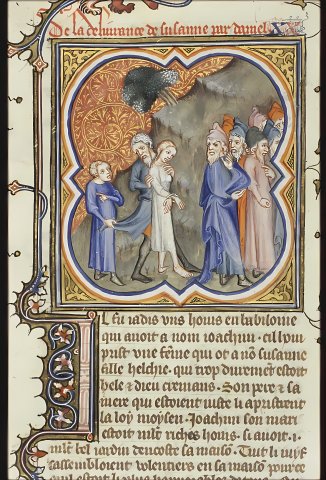 De la deliurance de susanne par daniel XX
Il fu iadis vns homs en babilonie
qui auoit a nom ioachim . cil homs
prist vne feme qui ot a nō susanne
fille helchie . qui trop durement estoit
bele ⁊ dieu cremans . Son pere ⁊ sa
mere qui estoient iuste li apristrent
la loy moysen . Joachim son mari
estoit mlt riches homs si auoit . i .
mlt bel iardin dencoste sa maisō . Tuit li iuyf
sassembloient uolentiers en sa maisō pource